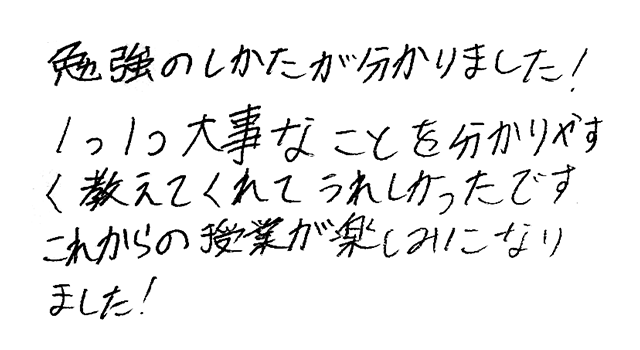 勉強のしかたが分かりました!
1つ1つ大事なことを分かりやす
く教えてくれてうれしかったです
これからの授業が楽しみになり
ました!